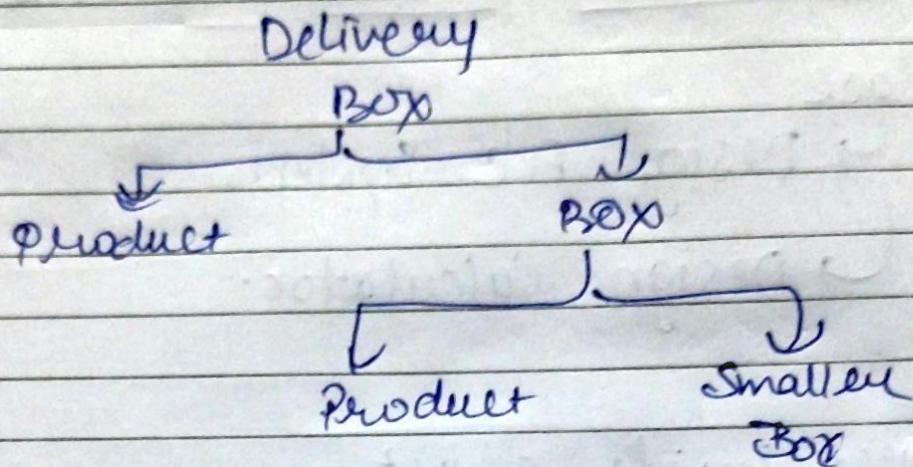 Delivery
Box
Product
Box
Product
Smaller
Box